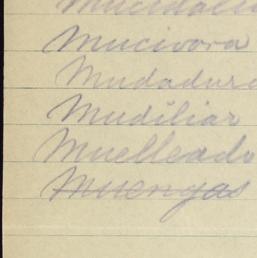 Mucivora
Mudadura
Mudiliar
Muelleado
Muengas